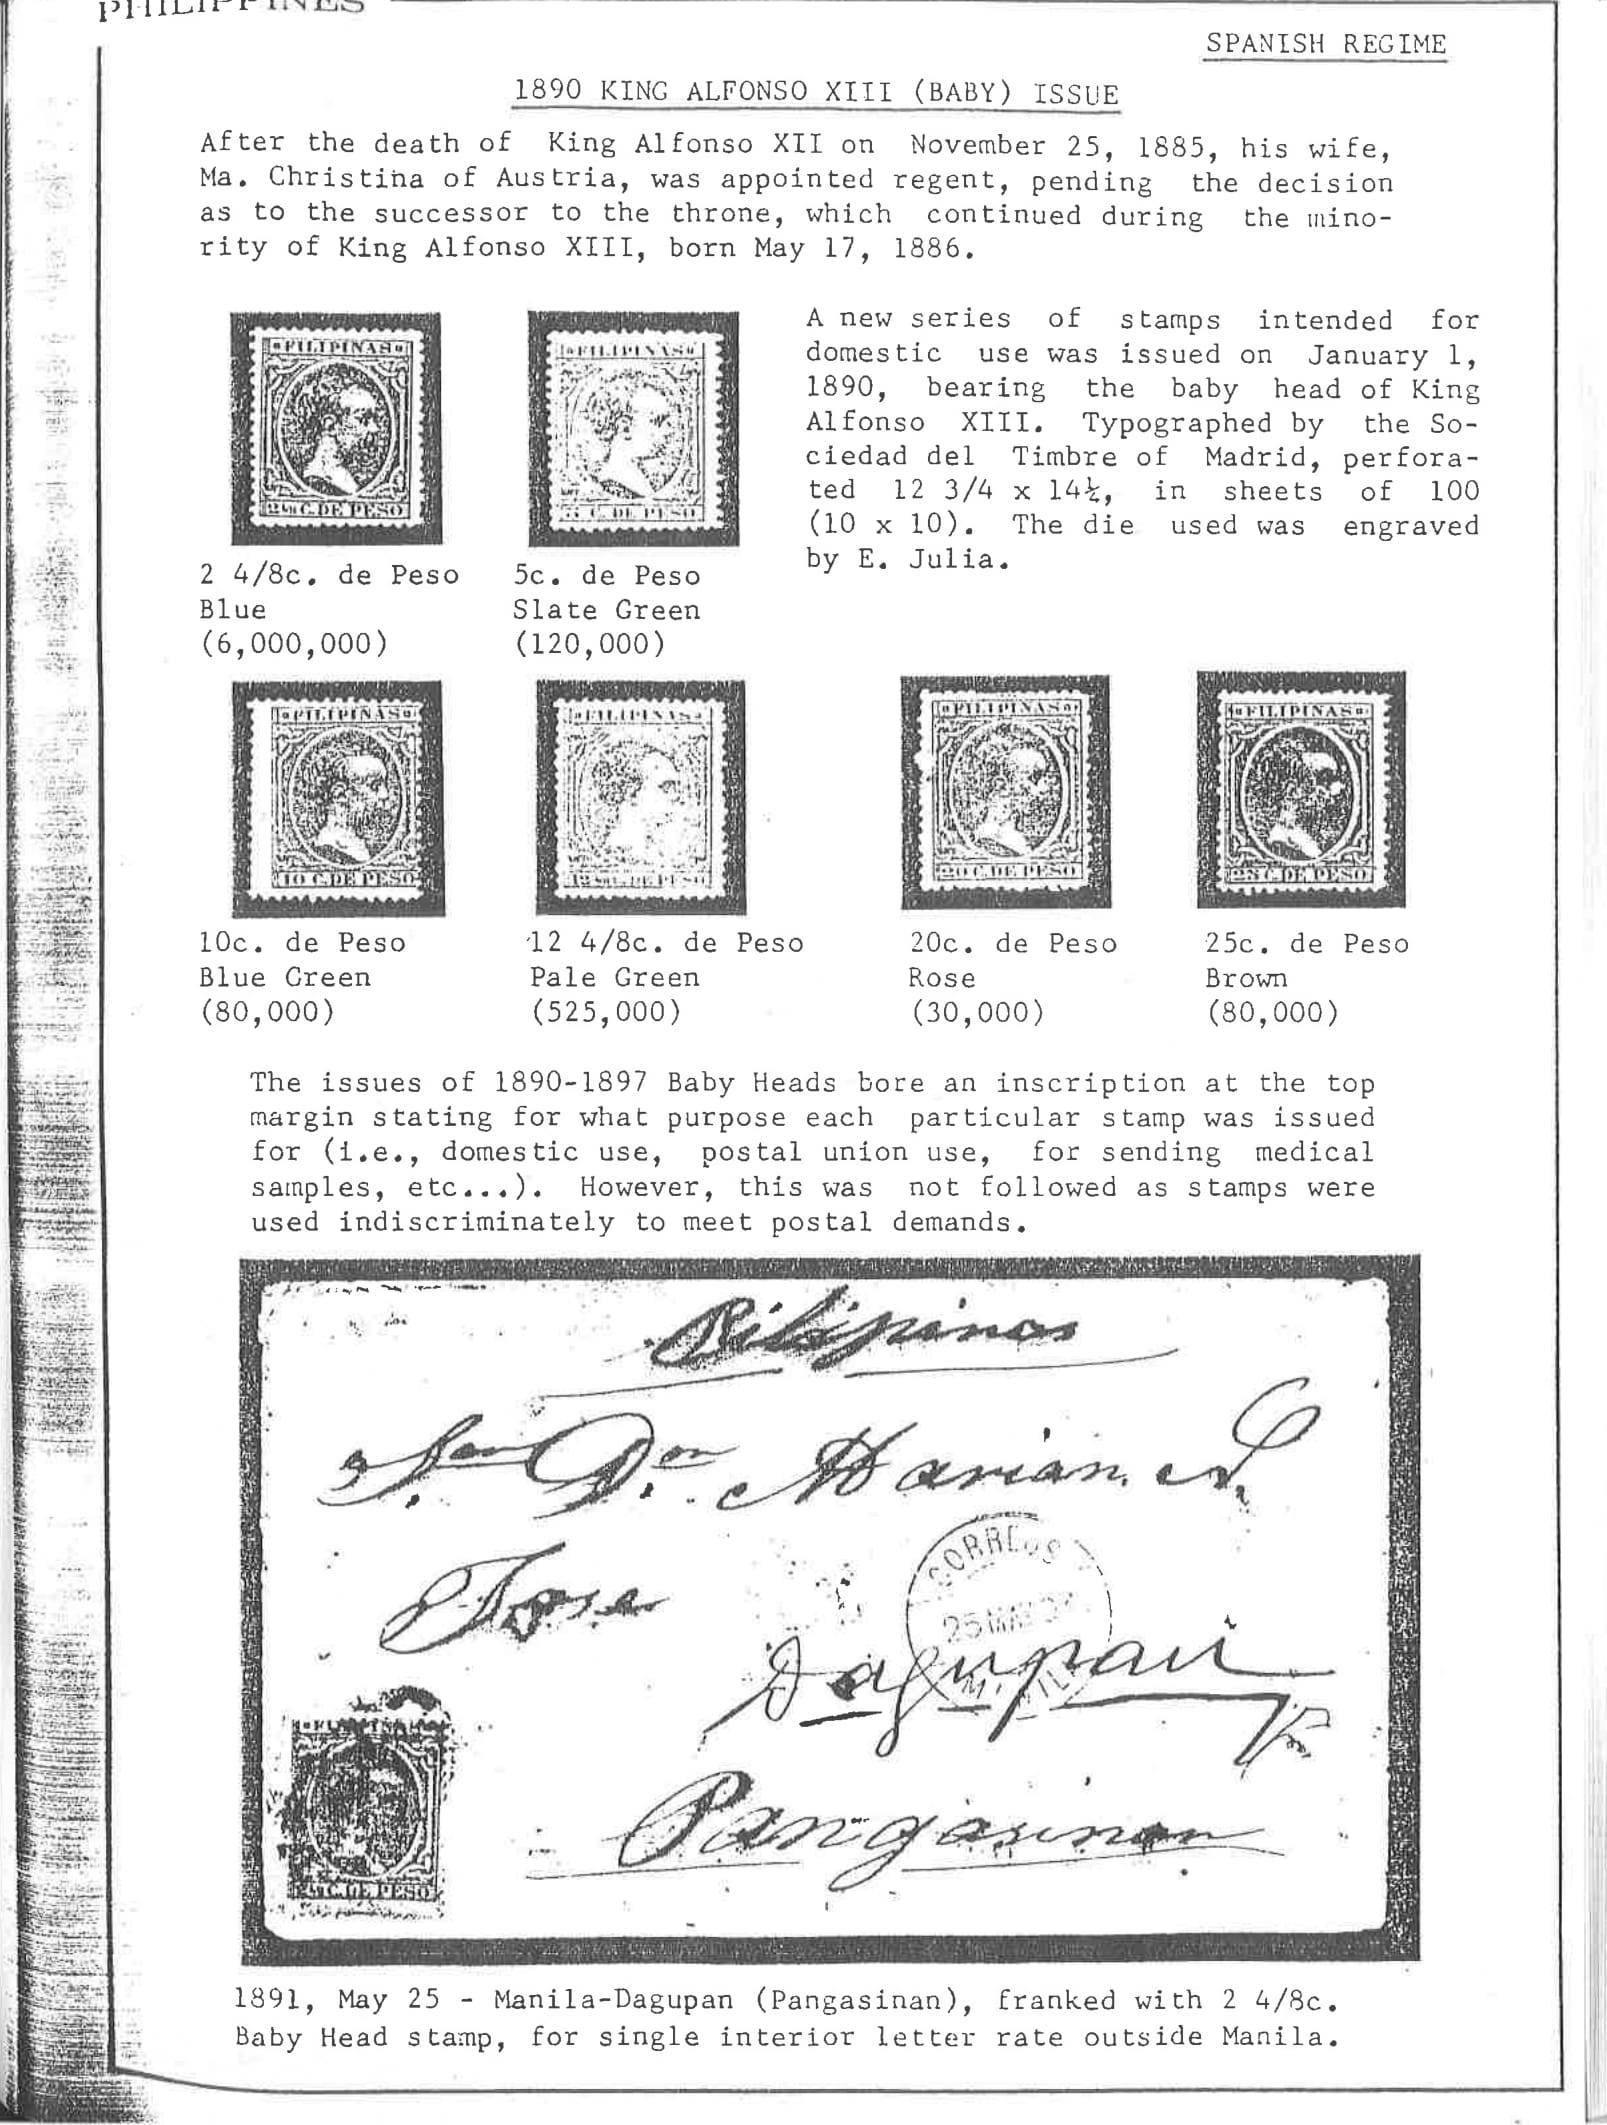 PHILIPPINES
SPANISH REGIME
1890 KING ALFONSO XIII (BABY) ISSUE
After the death of King Alfonso XII on November 25, 1885, his wife,
Ma. Christina of Austria, was appointed regent, pending the decision
as to the successor to the throne, which continued during the mino-
rity of King Alfonso XIII, born May 17, 1886.
A new series of stamps intended for
domestic use was issued on January 1,
1890, bearing the baby head of King
Alfonso XIII. Typographed by the So-
ciedad del Timbre of Madrid, perfora-
ted 12 3/4 x 14½, in sheets of 100
(10 x 10). The die used was engraved
by E. Julia.
FILIPINAS
2 4/8 C. DE PESO
FILIPINAS
5 C. DE PESO
2 4/8c. de Peso
Blue
(6,000,000)
5c. de Peso
Slate Green
(120,000)
FILIPINAS
10 C. DE PESO
FILIPINAS
12 4/8 C. DE PESO
FILIPINAS
20 C. DE PESO
FILIPINAS
25 C. DE PESO
10c. de Peso
Blue Green
(80,000)
12 4/8c. de Peso
Pale Green
(525,000)
20c. de Peso
Rose
(30,000)
25c. de Peso
Brown
(80,000)
The issues of 1890-1897 Baby Heads bore an inscription at the top
margin stating for what purpose each particular stamp was issued
for (i.e., domestic use, postal union use, for sending medical
samples, etc...). However, this was not followed as stamps were
used indiscriminately to meet postal demands.
Filipinas
Dn. Marian
CORREOS
25 MAY
Dagupan
FILIPINAS
C. DE PESO
Pangasinan
1891, May 25 - Manila-Dagupan (Pangasinan), franked with 2 4/8c.
Baby Head stamp, for single interior letter rate outside Manila.